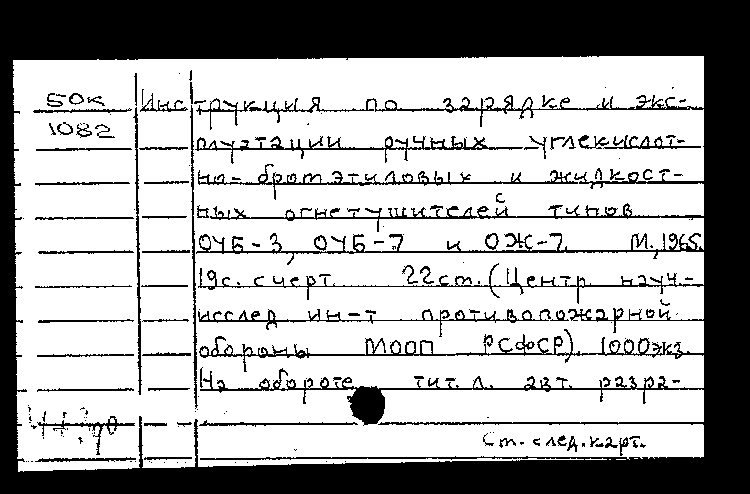 50к Инструкция по зарядке и экс-
1082 плуатации ручных углекислот-
но-бромэтиловых и жидкост-
ных огнетушителей типов
ОУБ-3, ОУБ-7 и ОЖ-7. М., 1965.
19с. с черт. 22 см. (Центр. науч.-
исслед. ин-т противопожарной
обороны МООП РСФСР). 1000 экз.
На обороте тит. л. авт. разра-
См. след. карт.